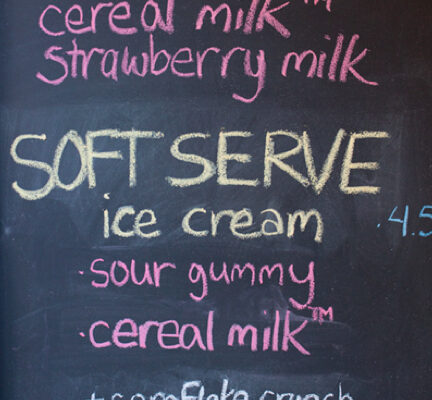 cereal milk™
strawberry milk
SOFT SERVE
ice cream ·4.5
·sour gummy
·cereal milk™
crunch